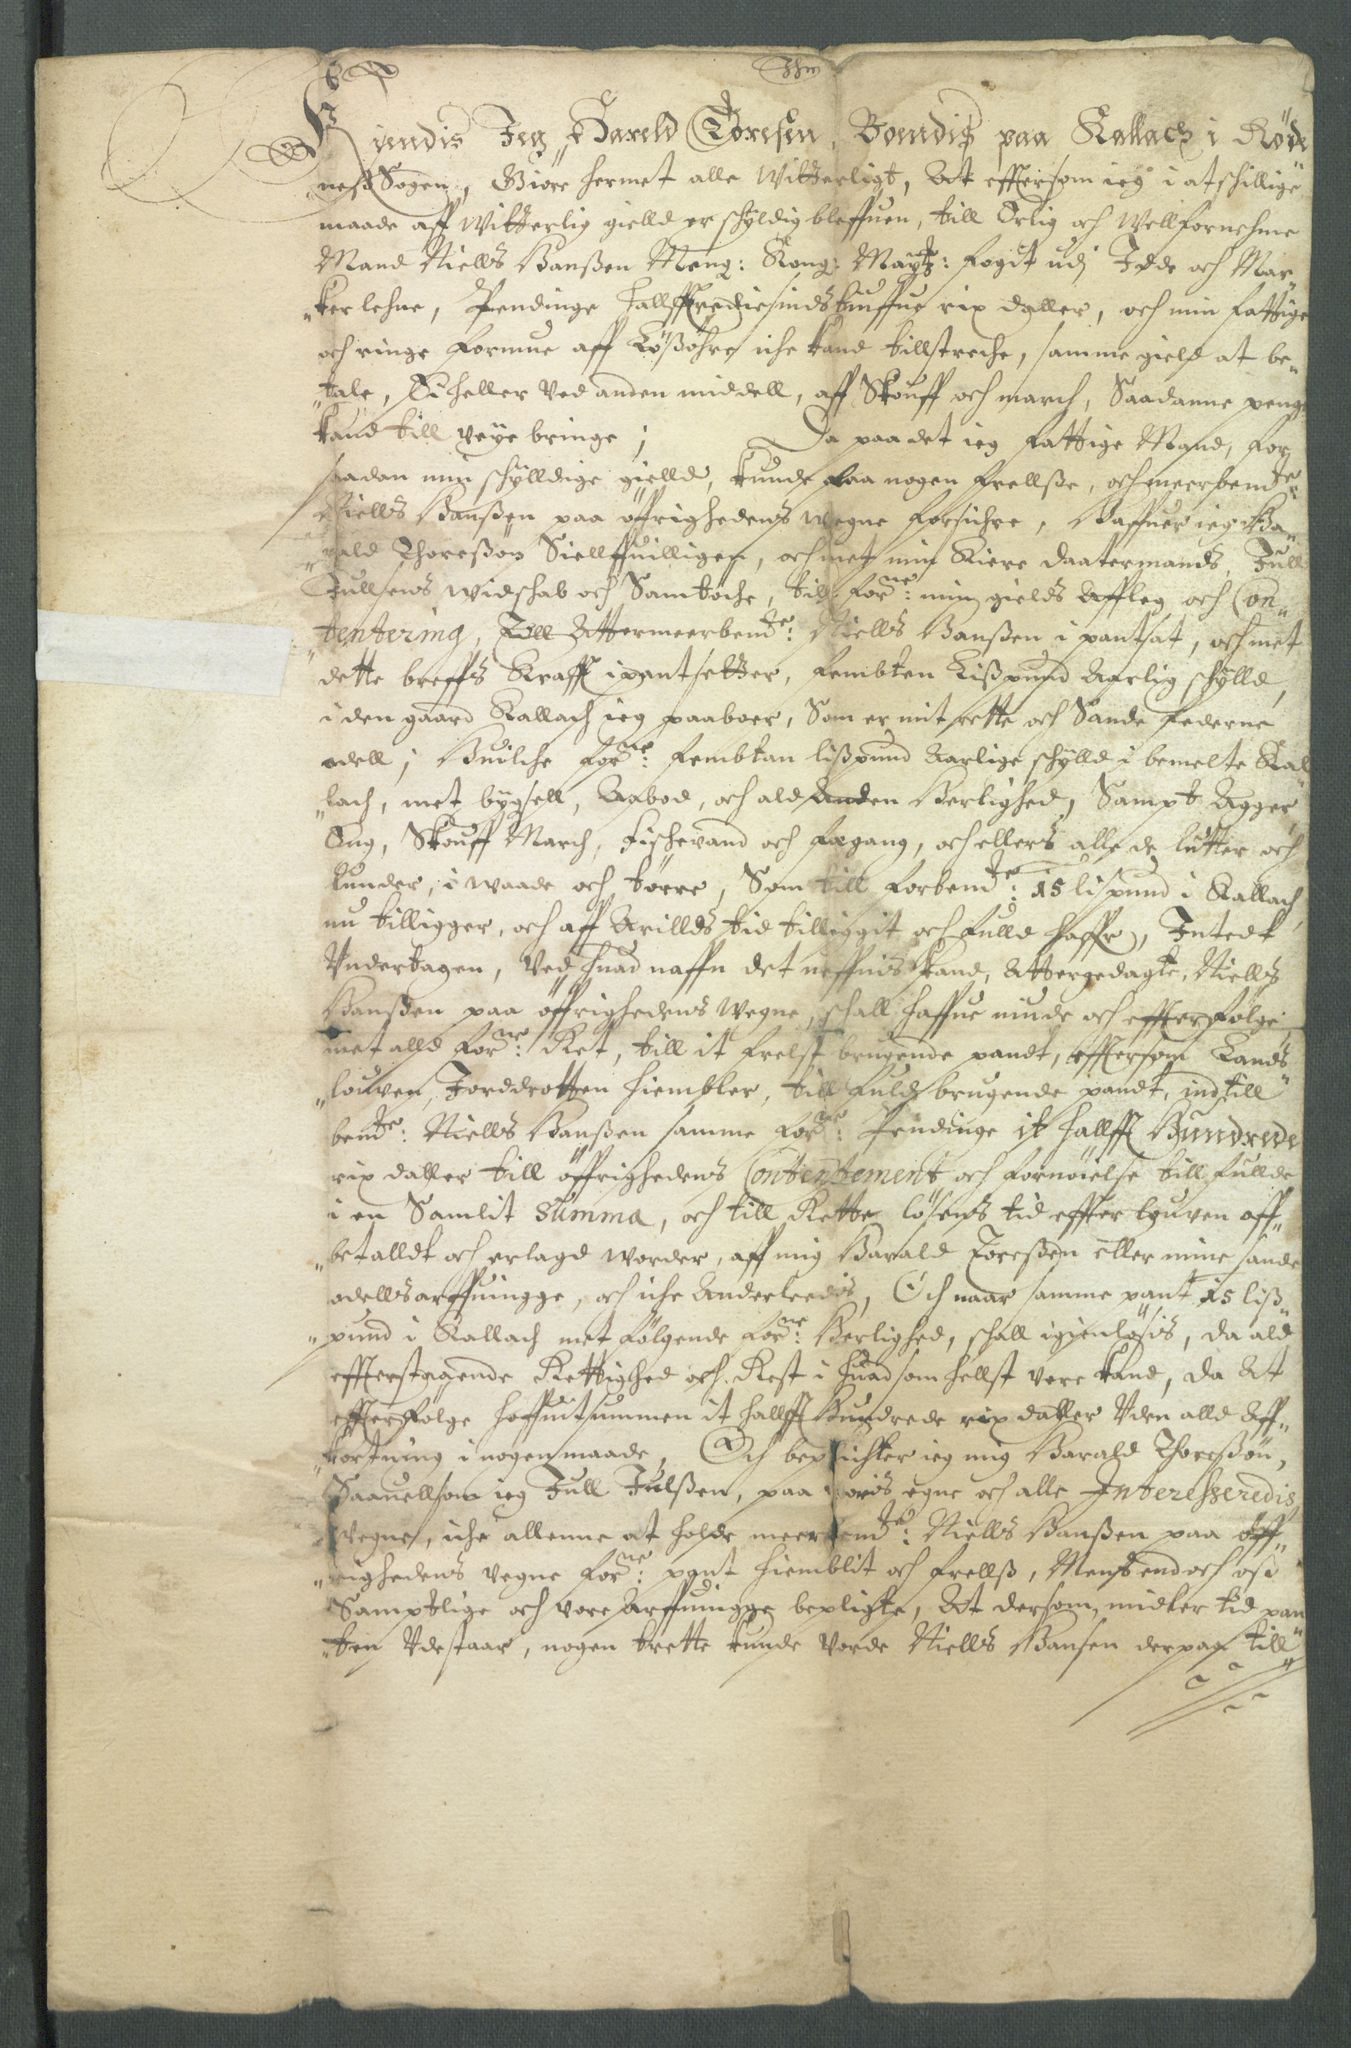 Kiendis Jeg Hareld Toresen, Boendis paa Kallach i Röde
neß Sogen, Giöre hermet alle Witterligt, At effersom ieg i atschillige
maade aff Witterlig gielld er schyldig bleffuen, till Erlig och Wellfornehme
Mand Niells Hanßen Kong: Maytz: fogit udj Idde och Mar„
„ker lehne, Pendinge halfftrediesindstiuffue rix daller, och min fattige
och ringe formue aff Lößöhre iche kand tillstreche, samme gield at be„
„tale, Ei heller Ved anden middell, aff Skouff och march, Saadanne penge
kand till veye bringe; Da paa det ieg fattige Mand, for
saadan min schylldige gielld, kunde faa nogen frellße, och meerbemte:
Niells Hanßen paa öffrighedens wegne forsichre, Haffuer ieg Ha„
„rald Thoreßön Siellffuilligen, och met min Kiere daatermands, Jull
Jullsens widschab och Samtöche, till forne: min gields Affleg och Con„
„tentering, Till Attermeerbemte: Niells Hanßen i pantsat, och met
dette breffs Krafft ipantsetter, fembten Lißpund Aarlig schylld,
i den gaard Kallach ieg paaboer, Som er mit rette och Sande federne
odell; Huilche forne: fembtan lißpund Aarlige schylld i bemelte Kal
„lach, met bygsell, Aabod, och ald Anden Herlighed, Sampt Agger
Eng, Skouff March, fischevand och fægang, och ellers alle de lutter och
lunder, i waade och törre, Som till forbemte: 15 lispund i Kallach
nu tilligger, och aff Arillds tid tilliggit och fulld haffr, Intedt
Undertagen, Ved huad naffn det neffnis kand, Attergedagte, Niells
Hanßen paa öffrighedens Wegne, schall haffue niude och effterfölge,
met alld forne: Ret, till it frelst brugende pandt, effersom Lands
„louven, Jorddrotten hiembler, till fuld brugende pandt, indtill
bemte: Niells Hanßen samme forne: Pendinge it hallfft Hundrede
rix daller till öffrighedens Contentement och fornöielse till fullde
i en Samlit Summa, och till Rette lösens tid effter louven aff„
„betalldt och erlagd worder, aff mig Harald Toreßen eller mine sande
odellsarffuingge, och iche Anderleedis, Och naar samme pant 15 liß„
„pund i Kallach met fölgende forne: Herlighed, schall igienlösis, da ald
effterstaaende Rettighed och Rest i huad som hellst vere kand, da At
effterfölge hoffuitsummen it hallfft Hundrede rix daller Uden alld Aff„
„kortning i nogen maade, Och beplichter ieg mig Harald Thoreßön,
Saauellsom ieg Jull Julßen, paa voris egne och alle Interesseredis
Wegne, iche allenne at holde meerbemte: Niells Hanßen paa öff„
„righedens vegne forne: pant hiemblit och frellß, Mens end och oß
Samptlige och vore Arffuingge bepligte, At dersom midler tid pan
„ten Udestaar, nogen trette kunde vorde Niells Hansen derpaa till„